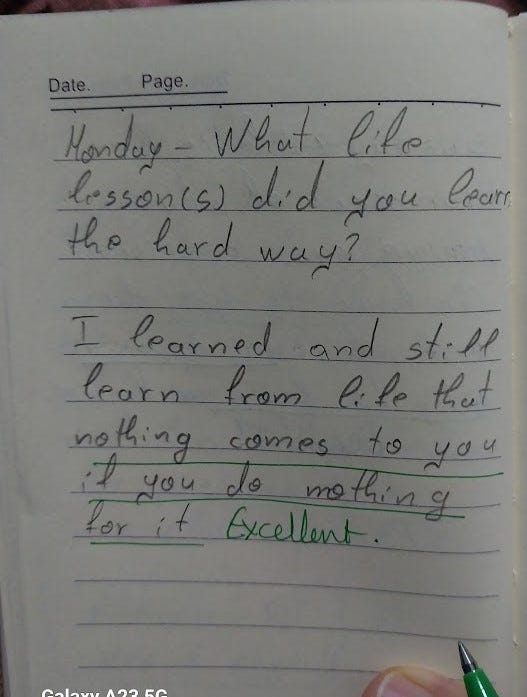 Date. Page.
Monday - What life
lesson(s) did you learn
the hard way?
I learned and still
learn from life that
nothing comes to you
if you do nothing
for it Excellent.
Galaxy A23 5G